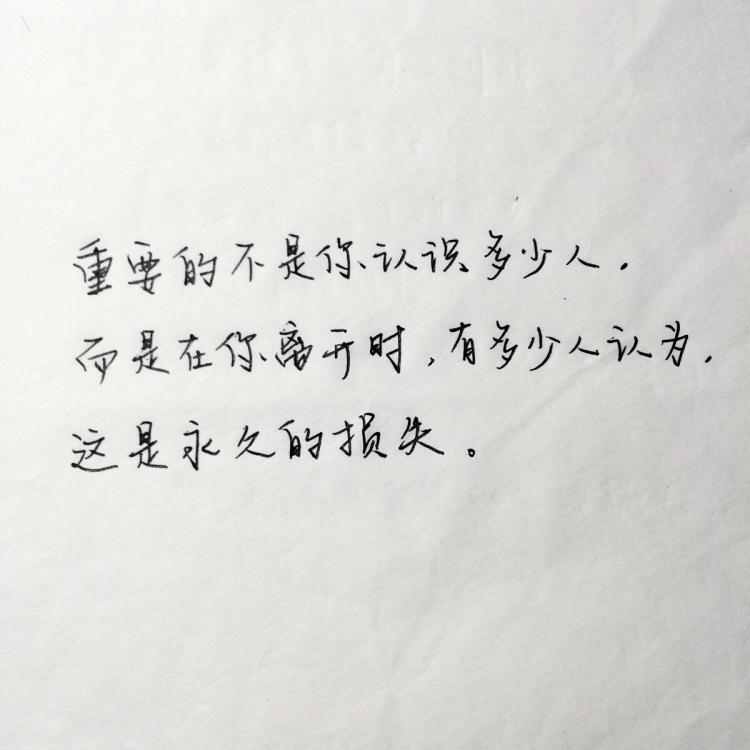 重要的不是你认识多少人，
而是在你离开时，有多少人认为，
这是永久的损失。